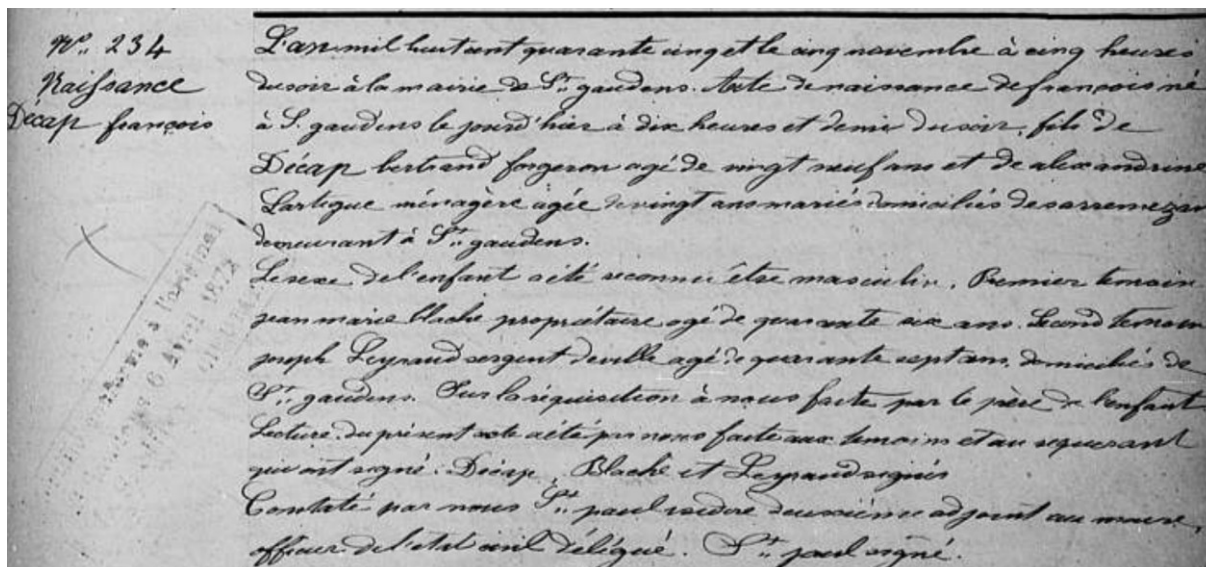 N.° 234
Naissance
Décap françois
L'an mil huit cent quarante cinq et le cinq novembre à cinq heures
du soir à la mairie de S.t gaudens. Acte de naissance de françois né
à S. gaudens le jour d'hier à dix heures et demie du soir, fils de
Décap bertrand forgeron agé de vingt neuf ans et de alexandrine
Lartigue ménagère agée de vingt ans mariés domiciliés de sarremezan
demeurant à S.t gaudens.
Le sexe de l'enfant a été reconnu être masculin. Premier temoin
jean marie blache propriétaire agé de quarante six ans. Second temoin
joseph Leyraud sergent de ville agé de quarante sept ans, domiciliés de
S.t gaudens. Sur la réquisition à nous faite par le père de l'enfant
Lecture du présent acte a été par nous faite aux temoins et au requerant
qui ont signé. Décap, Blache et Leyraud signés
Constaté par nous S.t paul deuxième adjoint au maire,
officier de l'état civil délégué. S.t paul signé.
6 Avril 1872